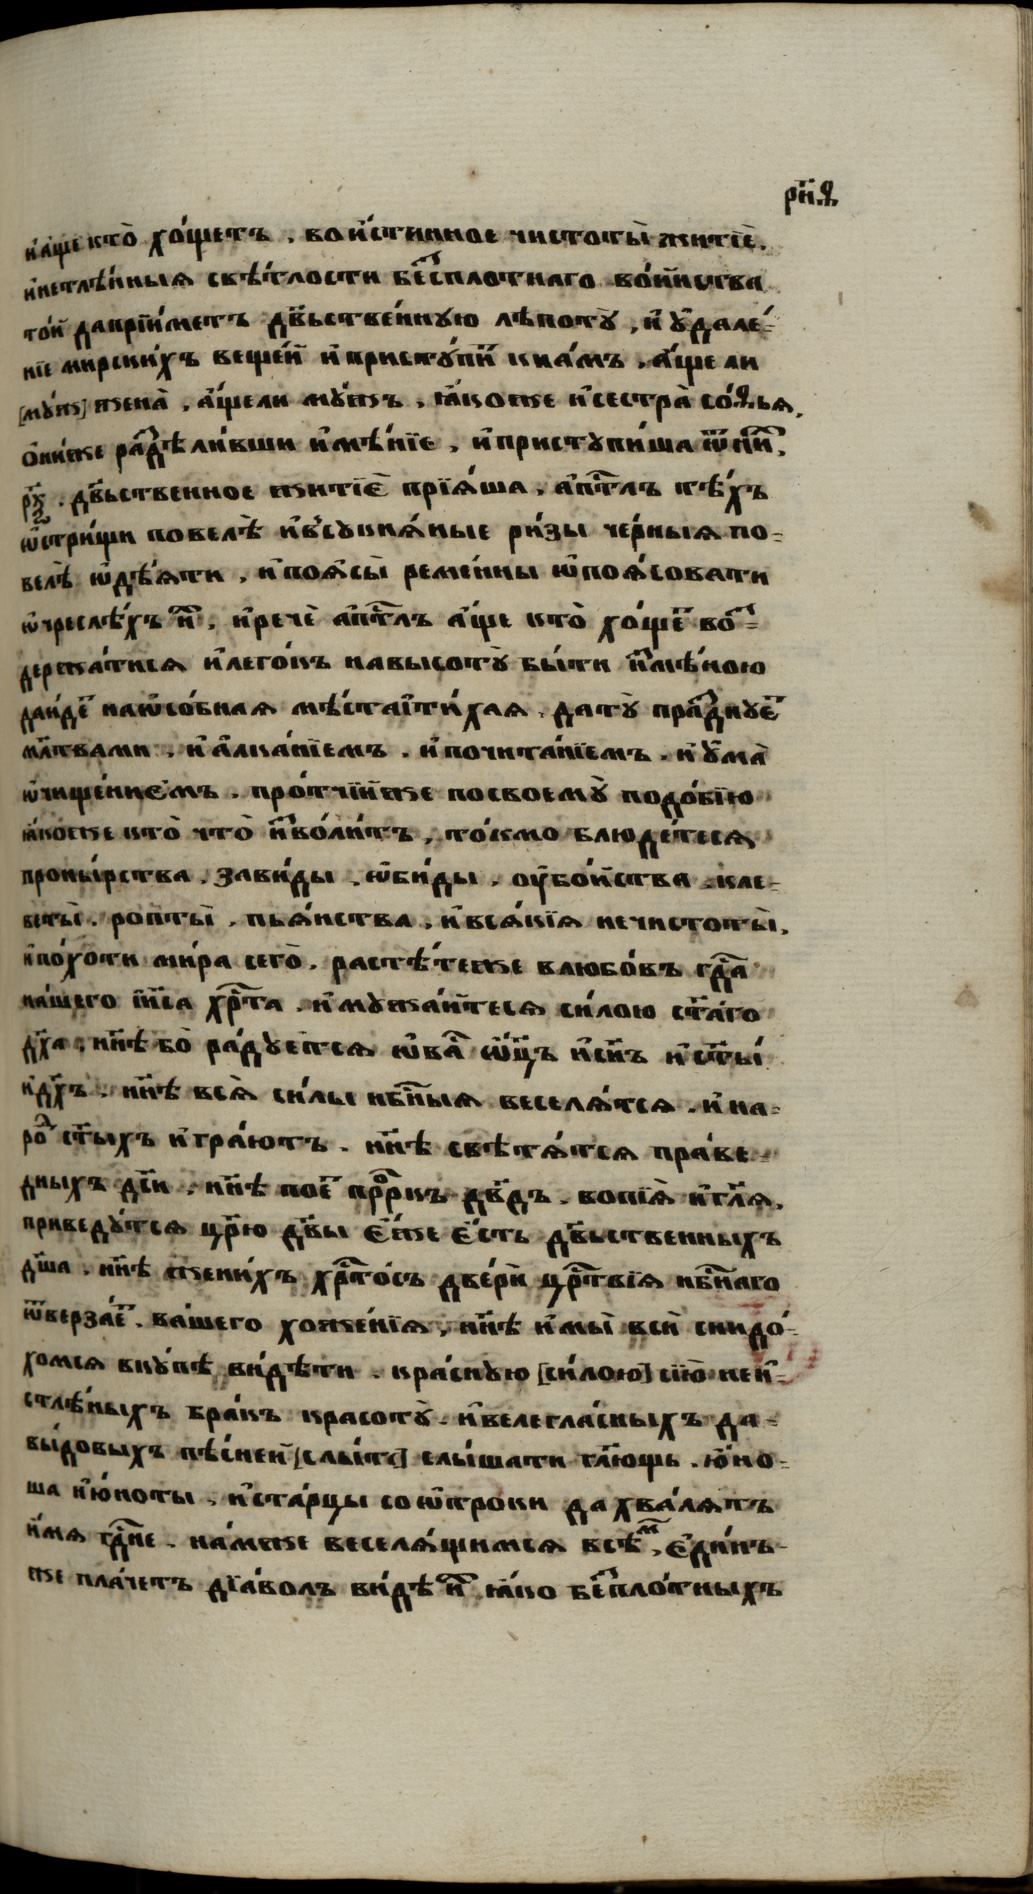 рн҃ѳ
и҆а҆́ще кто̀ хо́щетъ . вои́стинное чистоты̀ житїѐ .
и҆нетлѣ́нныя свѣ́тлости бес̾плотнаго во́инства
то́й даприи́метъ дв҃ьстве́нную лѣпоту̀ , и҆ ᲂу҆дале́-
нїе мирски́хъ веще́й и҆ приступи́ кна́мъ . а҆́ще ли
[му́жъ] жена̀ , а҆́щели му́жъ , ꙗ҆́коже и҆ сестра̀ соѳ́ья ,
ѻ҆ни́же раздѣли́вши и҆мѣ́нїе , и҆ приступи́ша ѿ ни́х̾ ,
р҃к . дв҃ьственное житїѐ прїѧ́ша . а҆пс̑лъ тѣ́хъ
ѡ҆стрищи повелѣ̀ и҆ в̾сукнѧ́ные ри́зы че́рныя по-
велѣ̀ ѡ҆дѣ́яти , и҆ поѧ́сы̀ реме́нны ѡ҆поѧ́совати
ѡ҆чреслѣ́хъ и҆х̾ , и҆ речѐ а҆пс̑лъ а҆́ще кто̀ хо́щет̾ воз̾-
держа́тися и҆ лего́къ навысоту̀ бы́ти и҆змѣ́ною
даи́дет̾ наѡ҆со́бная мѣ́ста и҆ ти́хая . да ту̀ пра́зднует̾
мл҃твами . и҆ а҆лка́нїемъ . и҆ почита́нїемъ . и҆ ᲂу҆ма̀
ѡ҆чище́ниемъ . про́тчїи же посвоему̀ подо́бїю
ꙗ҆́коже кто̀ что̀ и҆зво́литъ , то́кмо блюде́теся
проны́рства . за́виды . ѡ҆би́ды . ᲂу҆бо́йства . кле-
веты̀ . ропты̀ . пья́нства , и҆ всѧ́кїя нечистоты̀ ,
и҆ по́хоти ми́ра сего̀ . растѣ́теже влюбо́въ гд҇а
на́шего і҆и҃са хр҇та . и҆ мужа́йтеся си́лою ст҃а́го
дх҃а , нн҃ѣ бо̀ ра́дуется ѡ҆ва́с̾ ѻ҆ц҃ъ и҆ сн҃ъ и҆ ст҃ы́
и҆ дх҃ъ . нн҃ѣ всѧ̀ си́лы нб҇ныя веселѧ́тся . и҆ на-
ро́д̾ ст҃ыхъ и҆гра́ютъ . нн҃ѣ свѣтѧ́тся праве-
дныхъ дс҃и . нн҃ѣ пое́т̾ пр҇ркъ дв҃дъ . вопїѧ̀ и҆ гл҃я .
приведу́тся цр҃ю дв҃ы є҆́же є҆́сть дв҃ьственныхъ
дш҃а . нн҃ѣ жени́хъ хр҇то́съ две́ри цр҇твїя нб҇наго
ѿверза́ет̾ . ва́шего хоже́нїя , нн҃ѣ и҆ мы̀ всѝ снидо́-
хомся вку́пѣ ви́дѣти . кра́сную [си́лою] сїю̀ неи-
стлѣ́нныхъ бра́къ красоту̀ . и҆ велегла́сныхъ да-
вы́довыхъ пѣ́сней [слы́ш] слы́шати гл҃ющь . ю҆́но-
ша и҆ ю҆́ноты . и҆ ста́рцы со ѡ҆троки да хва́лятъ
и҆́мя гд҇не . на́мже веселѧ́щимся всѣ́м̾ , є҆ди́нъ-
же пла́четъ дїа́волъ ви́дѣ и҆х̾ ꙗ҆́ко бес̾пло́тныхъ